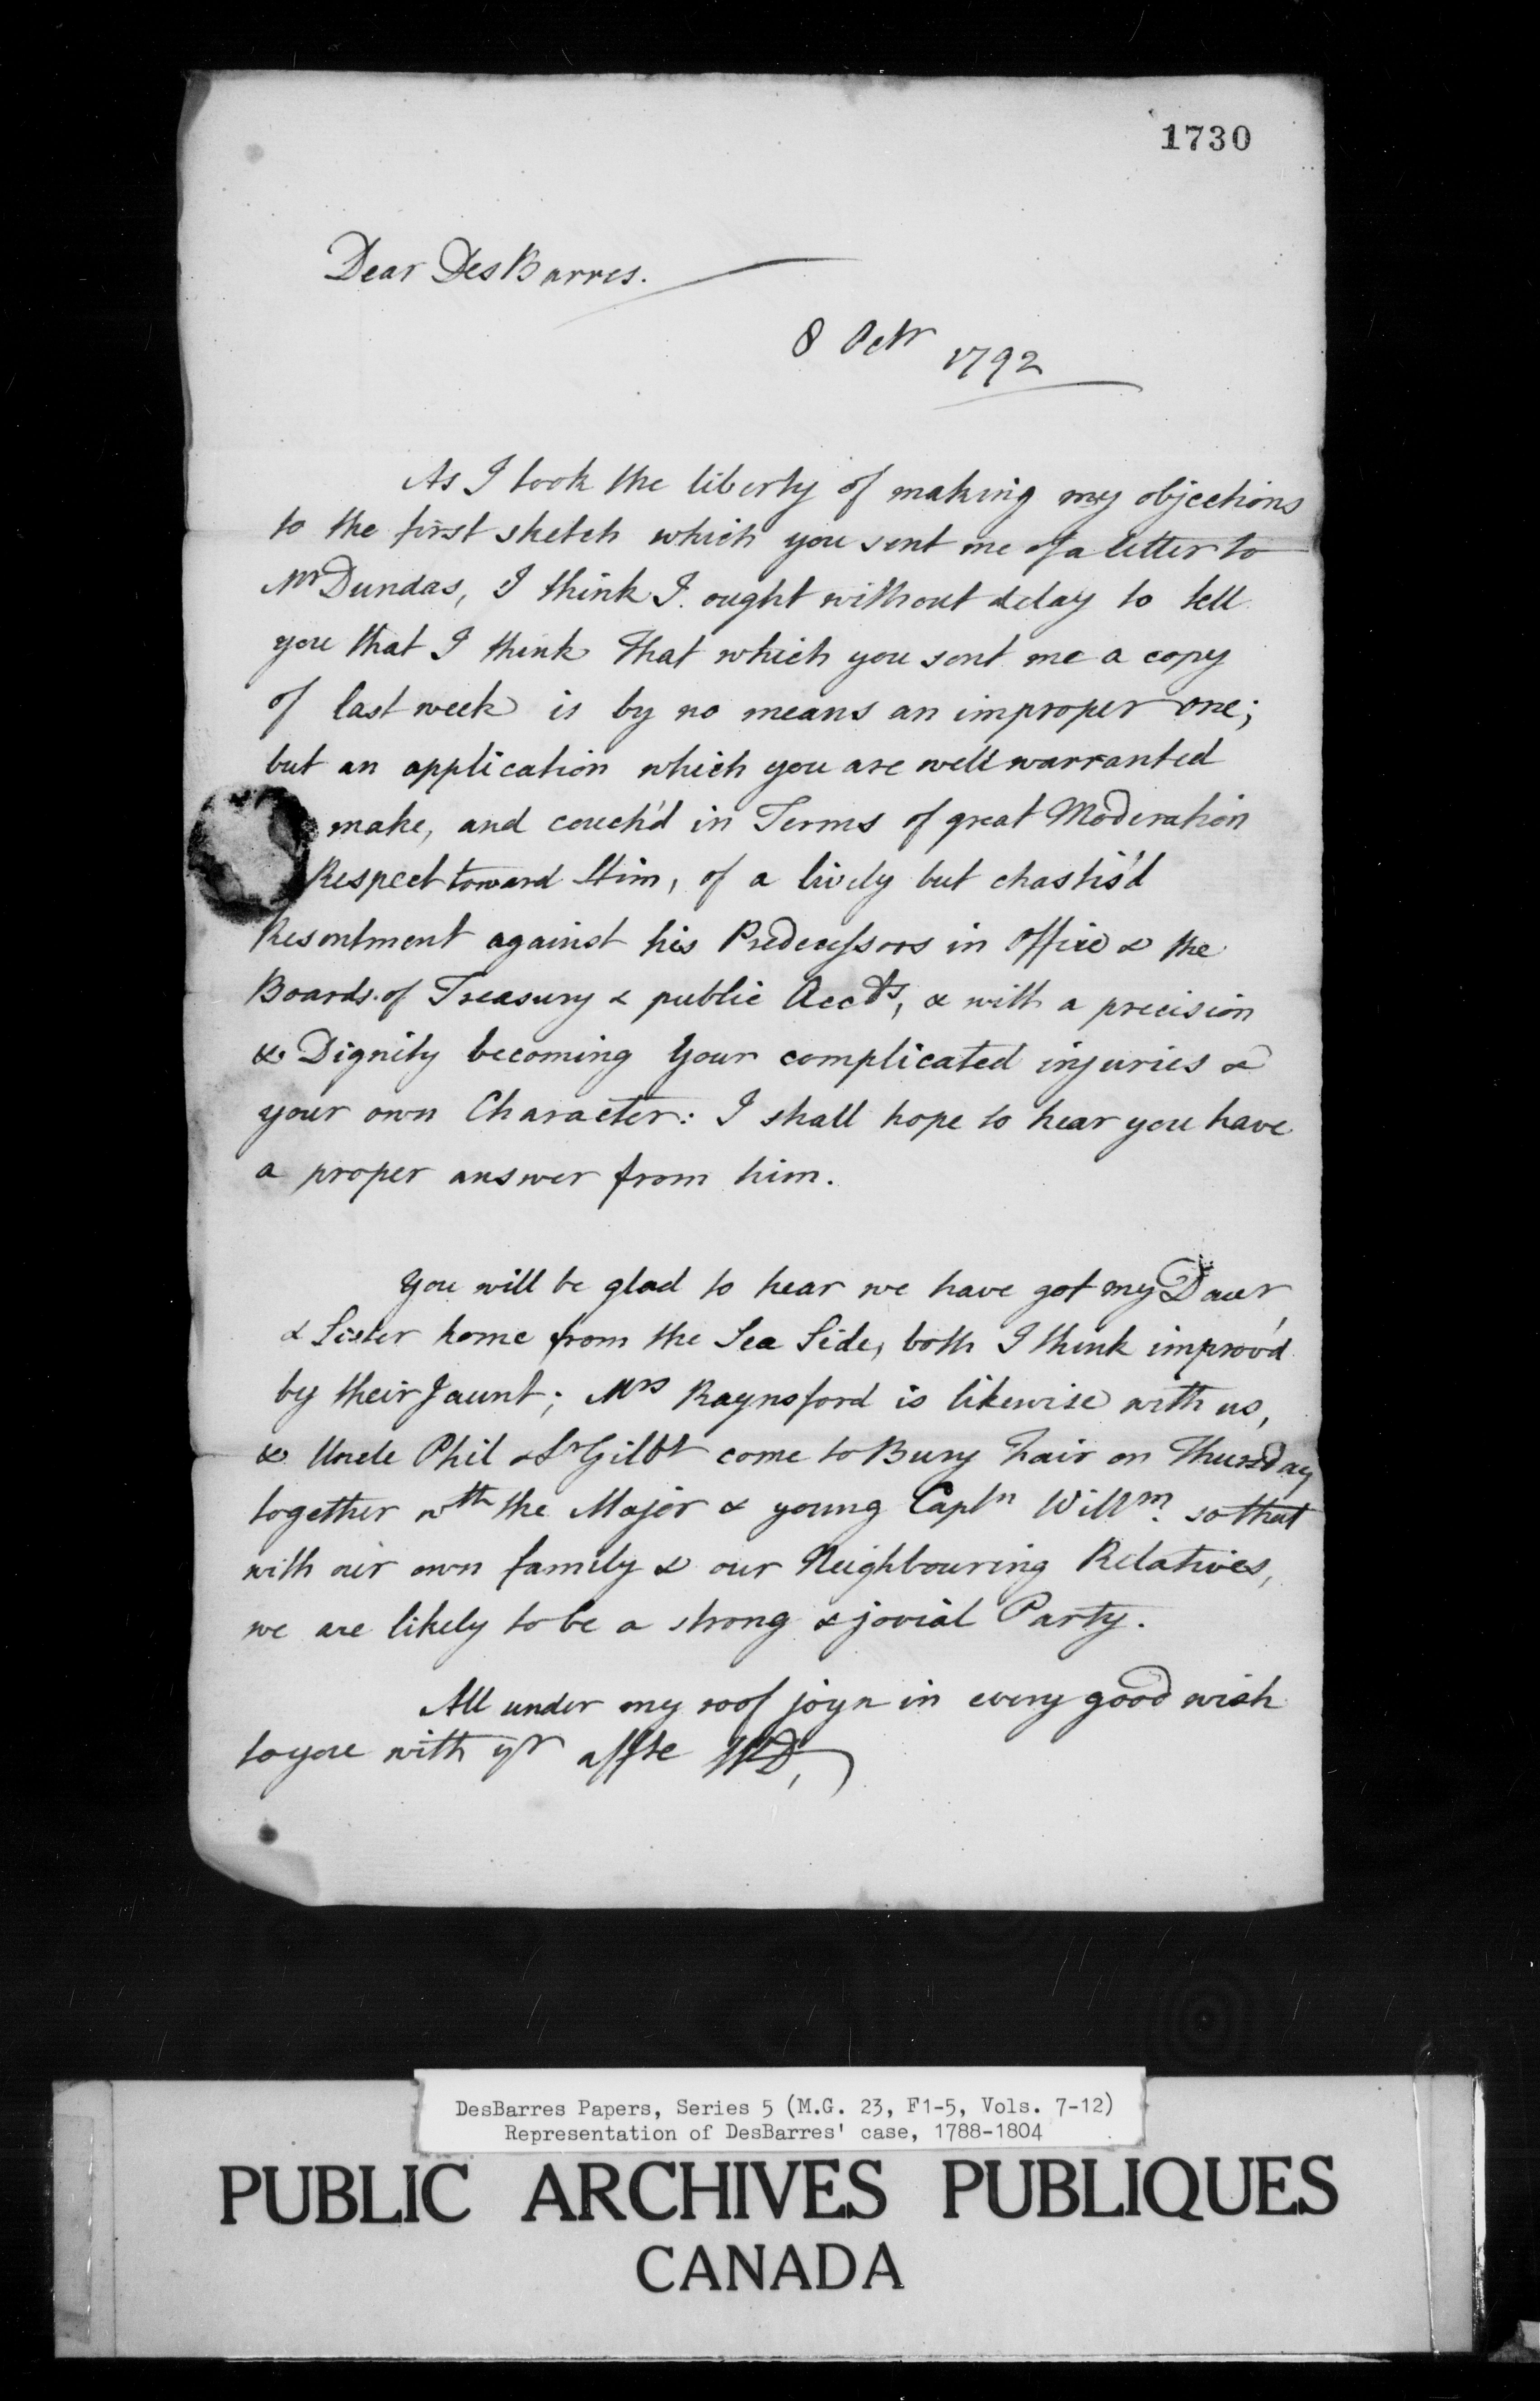 1730
Dear DesBarres.
8 Octr 1792
As I took the liberty of making my objections
to the first sketch which you sent me of a letter to
Mr Dundas, I think I ought without delay to tell
you that I think that which you sent me a copy
of last week is by no means an improper one;
but an application which you are well warranted
make, and couch'd in Terms of great Moderation
Respect toward Him, of a lively but chastis'd
Resentment against his Predecessors in Office & the
Boards of Treasury & public Accts, & with a precision
& Dignity becoming Your complicated injuries &
your own Character: I shall hope to hear you have
a proper answer from him.
You will be glad to hear we have got my Daur
& Sister home from the Sea Side, both I think improv'd
by their Jaunt; Mrs Raynsford is likewise with us,
& Uncle Phil & Sr Gilbt come to Bury Fair on Thursday
together wth the Major & young Captn Willm. so that
with our own family & our Neighbouring Relatives,
we are likely to be a strong & jovial Party.
All under my roof joyn in every good wish
to you with yr affte WD,
DesBarres Papers, Series 5 (M.G. 23, F1-5, Vols. 7-12)
Representation of DesBarres' case, 1788-1804
PUBLIC ARCHIVES PUBLIQUES
CANADA